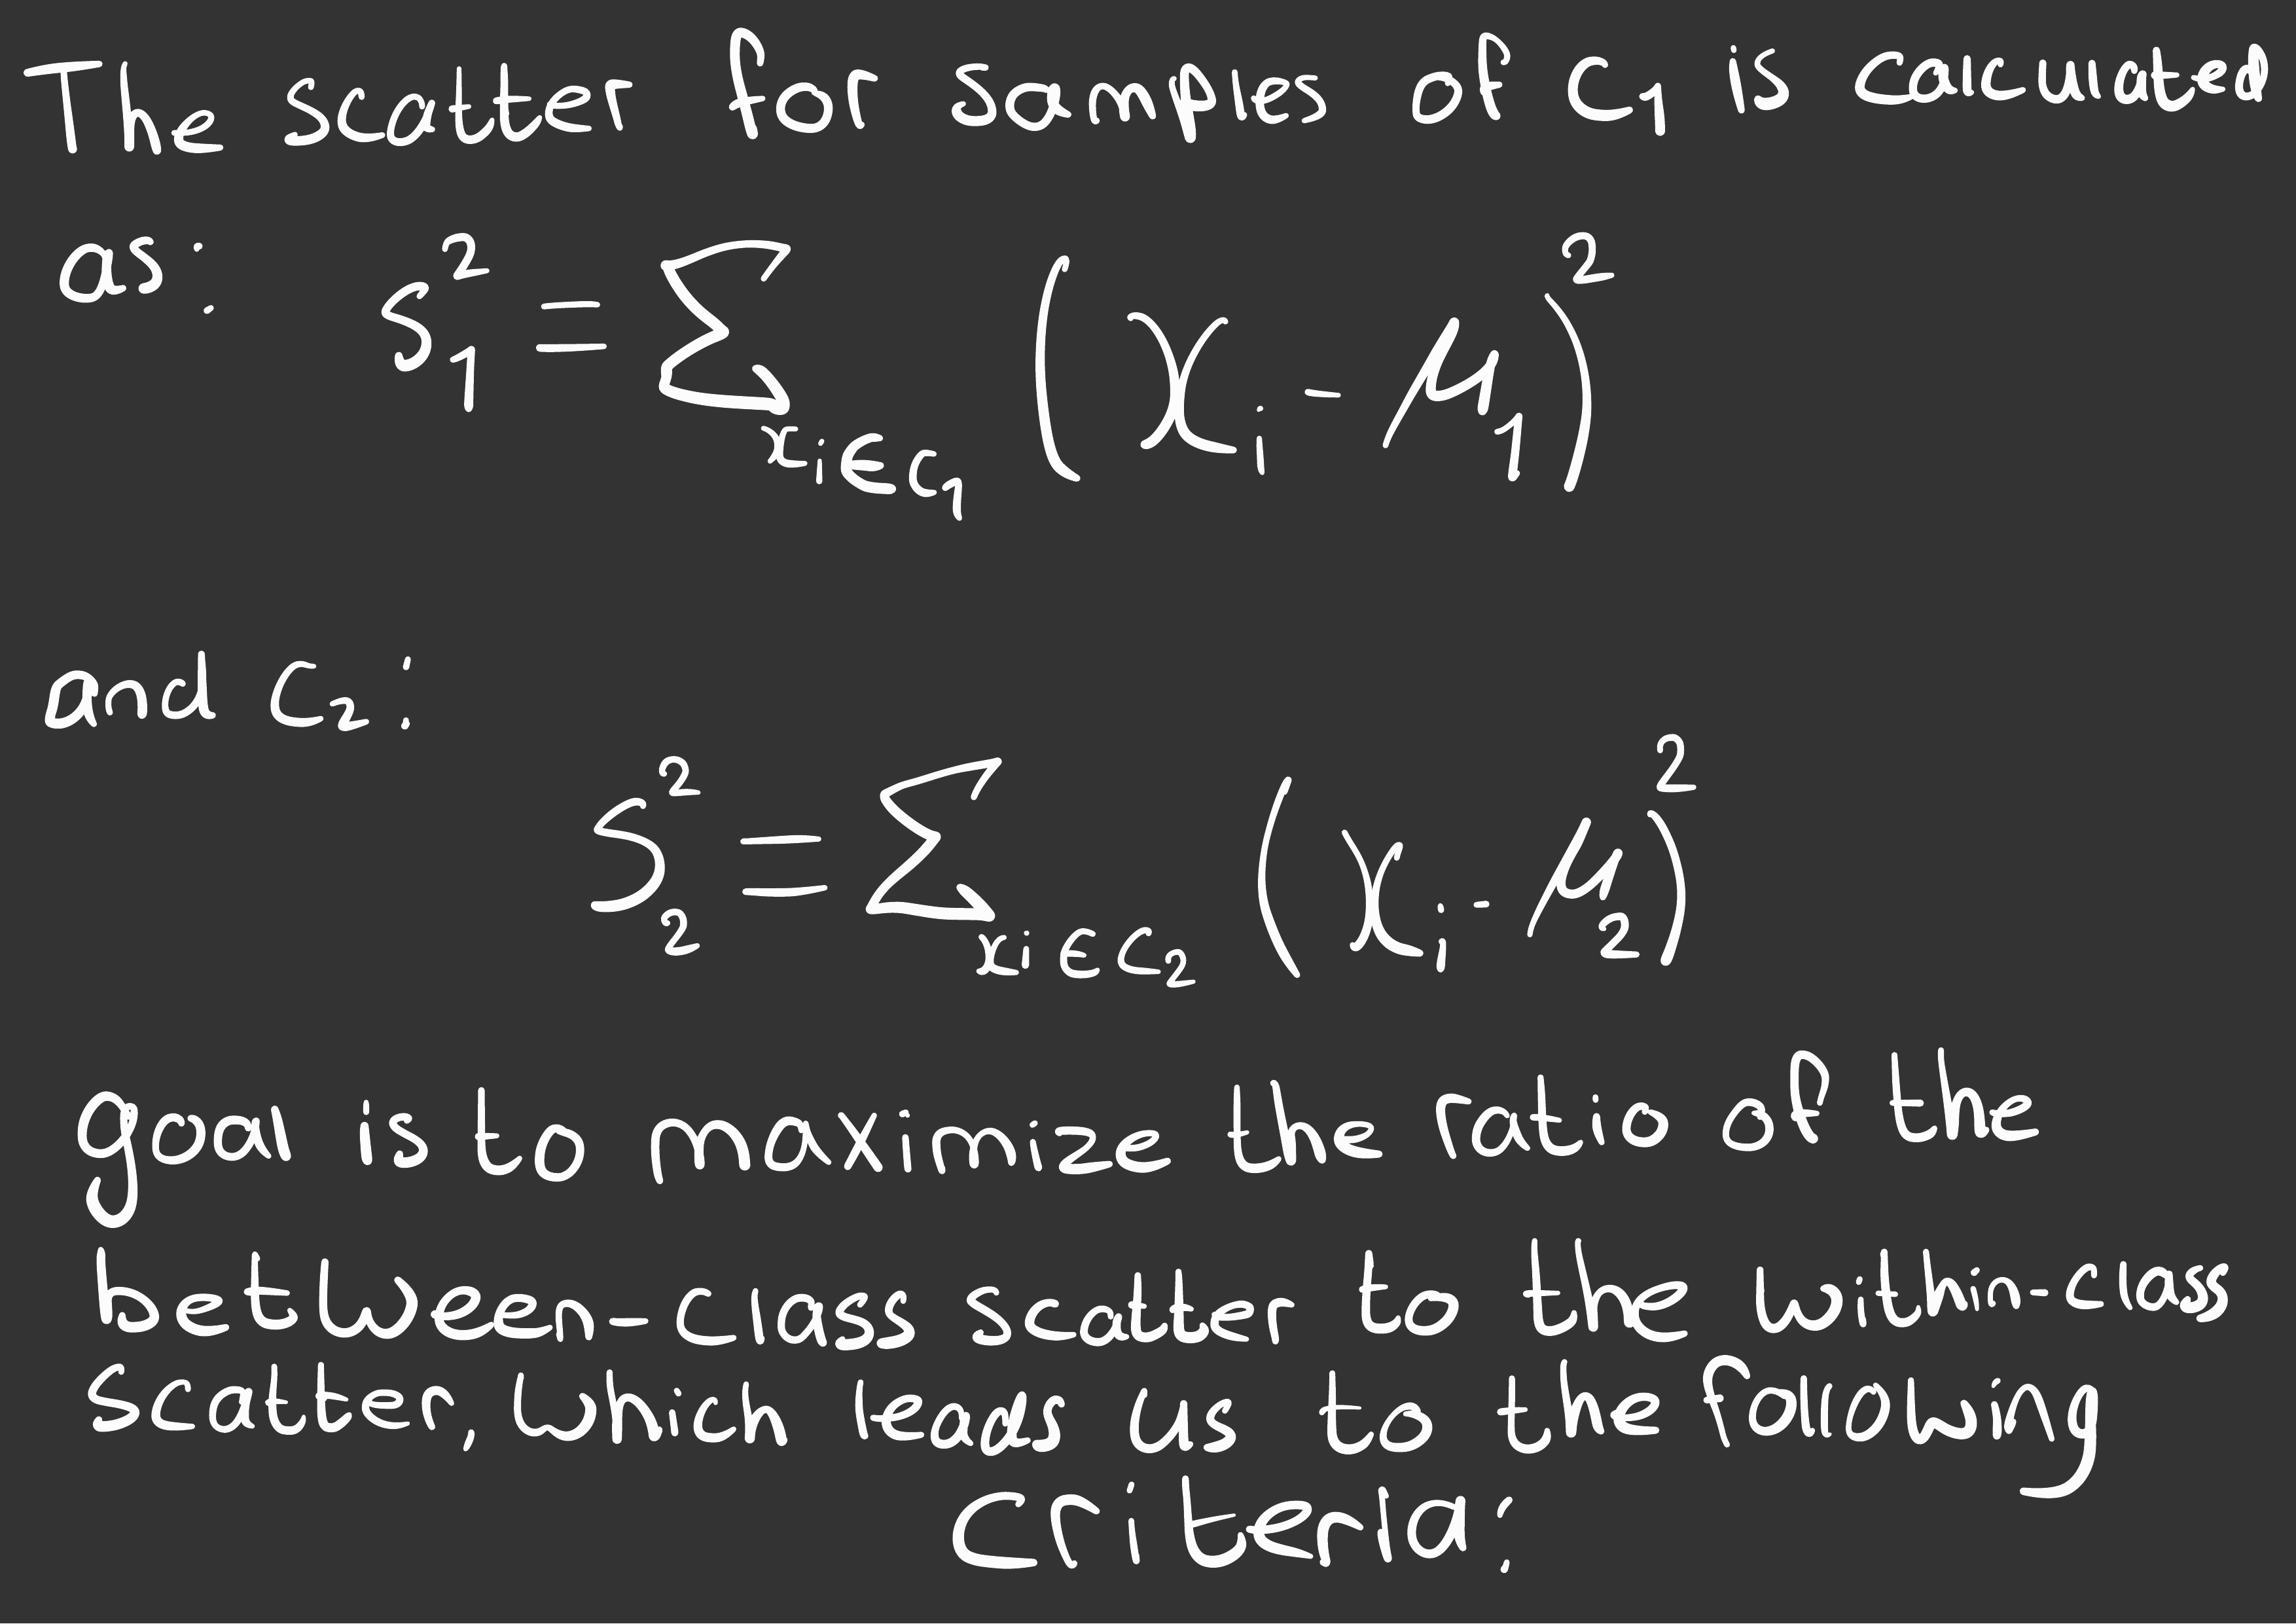 The scatter for samples of C₁ is calculated
as: S₁² = ∑_{xᵢ∈C₁} (xᵢ - μ₁)²
and C₂:
S₂² = ∑_{xᵢ∈C₂} (xᵢ - μ₂)²
goal is to maximize the ratio of the
between-class scatter to the within-class
scatter, which leads us to the following
criteria: